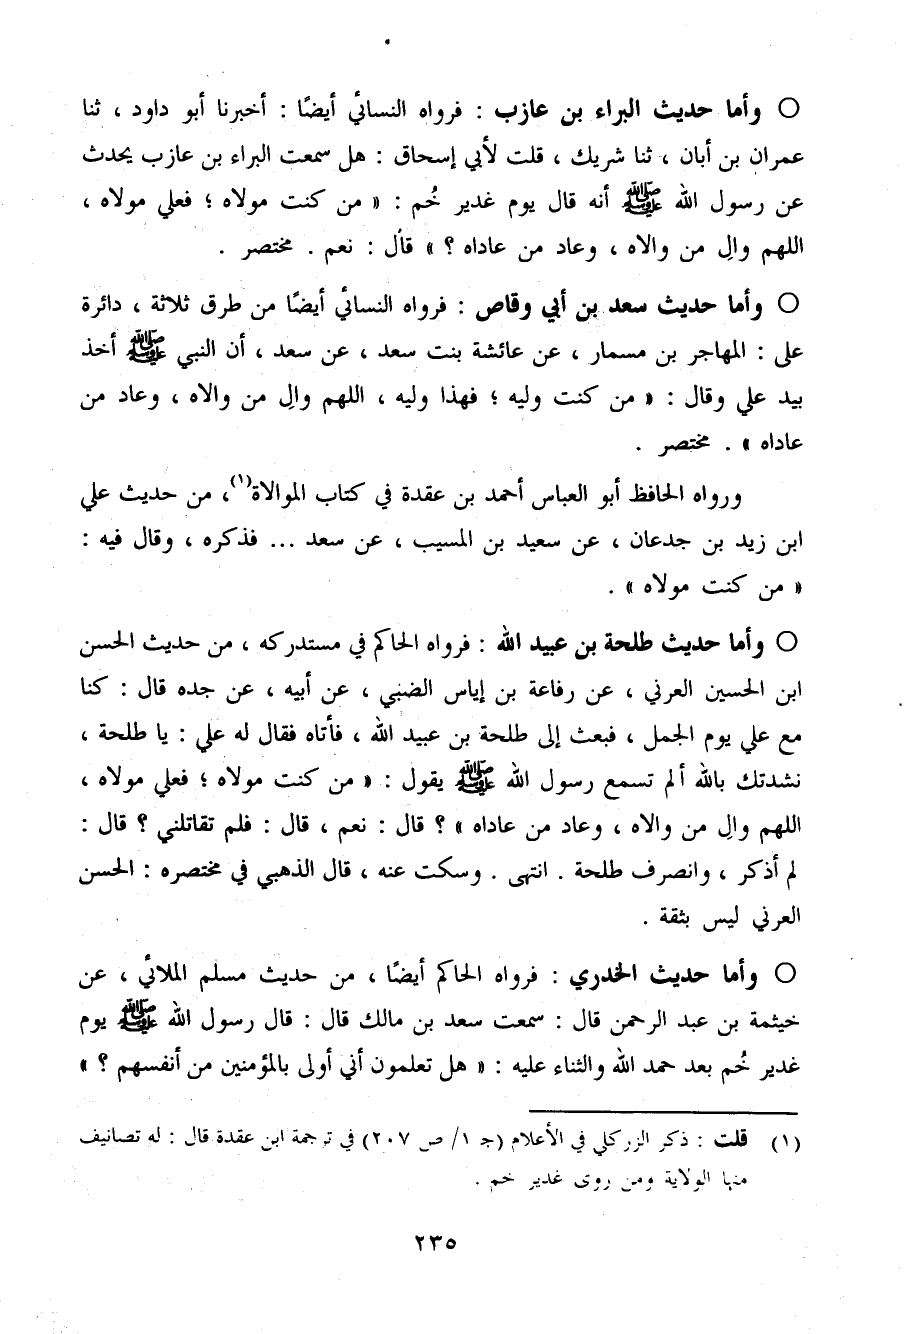 ○ وأما حديث البراء بن عازب : فرواه النسائي أيضًا : أخبرنا أبو داود ، ثنا
عمران بن أبان ، ثنا شريك ، قلت لأبي إسحاق : هل سمعت البراء بن عازب يحدث
عن رسول الله ﷺ أنه قال يوم غدير خُم : « من كنت مولاه ؛ فعلي مولاه ،
اللهم والِ من والاه ، وعاد من عاداه ؟ » قال : نعم . مختصر .
○ وأما حديث سعد بن أبي وقاص : فرواه النسائي أيضًا من طرق ثلاثة ، دائرة
على : المهاجر بن مسمار ، عن عائشة بنت سعد ، عن سعد ، أن النبي ﷺ أخذ
بيد علي وقال : « من كنت وليه ؛ فهذا وليه ، اللهم والِ من والاه ، وعاد من
عاداه » . مختصر .
ورواه الحافظ أبو العباس أحمد بن عقدة في كتاب الموالاة(١)، من حديث علي
ابن زيد بن جدعان ، عن سعيد بن المسيب ، عن سعد ... فذكره ، وقال فيه :
« من كنت مولاه » .
○ وأما حديث طلحة بن عبيد الله : فرواه الحاكم في مستدركه ، من حديث الحسن
ابن الحسين العرني ، عن رفاعة بن إياس الضبي ، عن أبيه ، عن جده قال : كنا
مع علي يوم الجمل ، فبعث إلى طلحة بن عبيد الله ، فأتاه فقال له علي : يا طلحة ،
نشدتك بالله ألم تسمع رسول الله ﷺ يقول : « من كنت مولاه ؛ فعلي مولاه ،
اللهم والِ من والاه ، وعاد من عاداه » ؟ قال : نعم ، قال : فلم تقاتلني ؟ قال :
لم أذكر ، وانصرف طلحة . انتهى . وسكت عنه ، قال الذهبي في مختصره : الحسن
العرني ليس بثقة .
○ وأما حديث الخدري : فرواه الحاكم أيضًا ، من حديث مسلم الملائي ، عن
خيثمة بن عبد الرحمن قال : سمعت سعد بن مالك قال : قال رسول الله ﷺ يوم
غدير خُم بعد حمد الله والثناء عليه : « هل تعلمون أني أولى بالمؤمنين من أنفسهم ؟ »
(١) قلت : ذكر الزركلي في الأعلام (جـ ١/ ص ٢٠٧) في ترجمة ابن عقدة قال : له تصانيف
منها الولاية ومن روى غدير خم .
٢٣٥